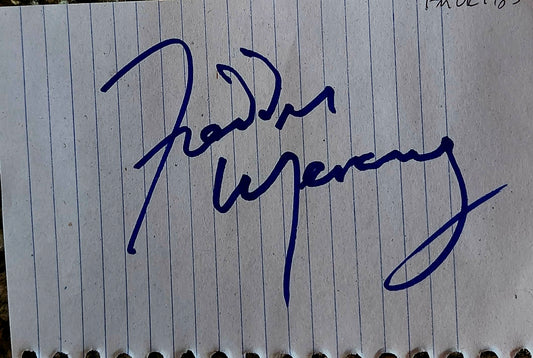 Freddie
Mercury